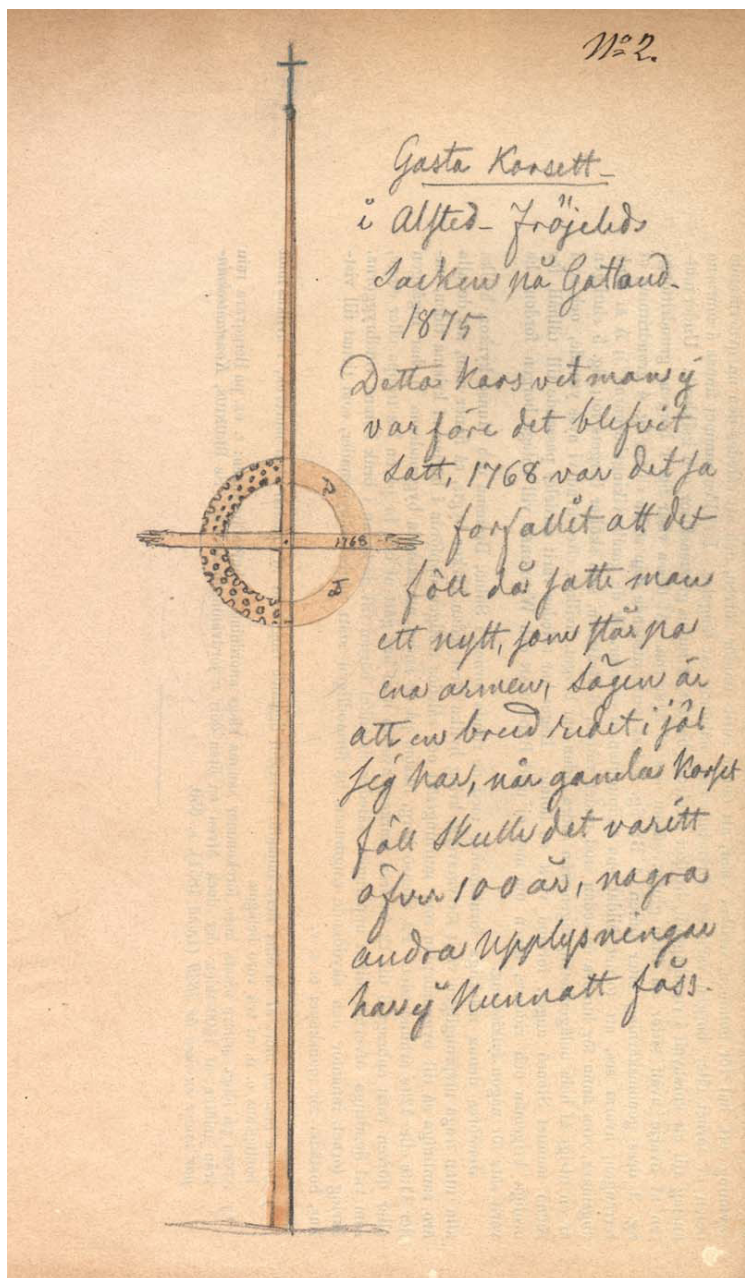 No 2.
Gasta Korsett
i Alsted - Fröjeleds
Socken på Gottland.
1875
Detta kors vet man ej
varföre det blefvit
satt, 1768 var det så
forfallit att det
föll då satte man
ett nytt, som står på
ena armen, Sägen är
att en brud redet i jäl
sig har, när gamla Korset
föll skulle det varitt
öfver 100 år, nagra
andra Upplysningar
har ej Kunnatt fåss.
1768